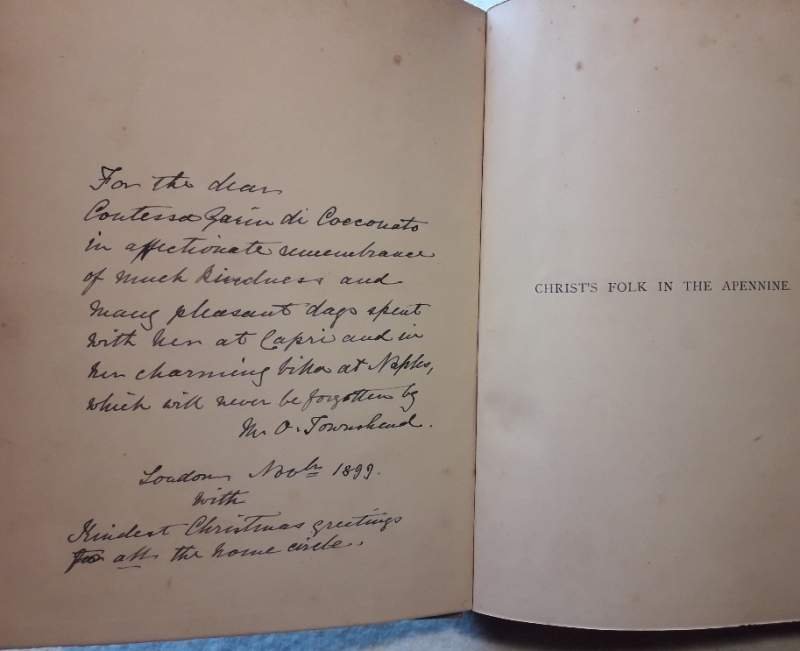 For the dear
Contessa Zarin di Cocconato
in affectionate remembrance
of much kindness and
many pleasant days spent
with her at Capri and in
her charming villa at Naples,
which will never be forgotten by
M. O. Townshend.
London, Novbr 1899.
with
Kindest Christmas greetings
for all the home circle.
CHRIST'S FOLK IN THE APENNINE.